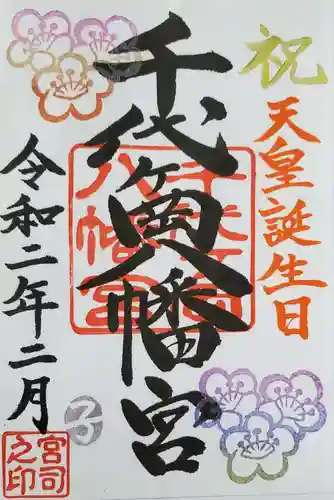 祝
天皇誕生日
千代ヶ岡八幡宮
千代ヶ岡八幡宮
令和二年二月
子
宮司之印